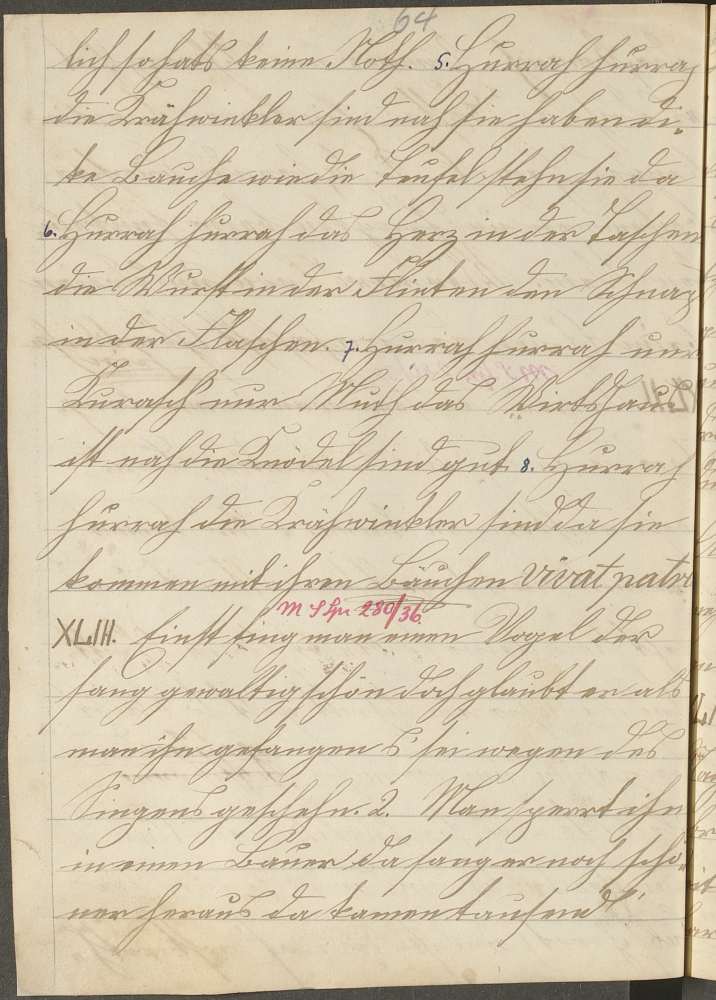 64
lich so hats keine Noth. 5. Hurrah hurrah
die Krähwinkler sind nah sie haben di-
ke Bauche wie die Teufel stehn sie da
6. Hurrah hurrah das Herz in der Taschen
die Wurst in der Flinten den Schnaps
in der Flaschen. 7. Hurrah hurrah nur
Kurasch nur Muth das Wirtshaus
ist nah die Knödel sind gut. 8. Hurrah
hurrah die Krähwinkler sind da sie
kommen mit ihren Bäuchen Vivat patri
M S Spr 280/36
XLIII. Einst fing man einen Vogel der
sang gewaltig schön doch glaubt er als
man ihn gefangen s' sei wegen des
Singens geschehn. 2. Man sperrt ihn
in einen Bauer da sang er noch schö-
ner heraus da kamen tausend